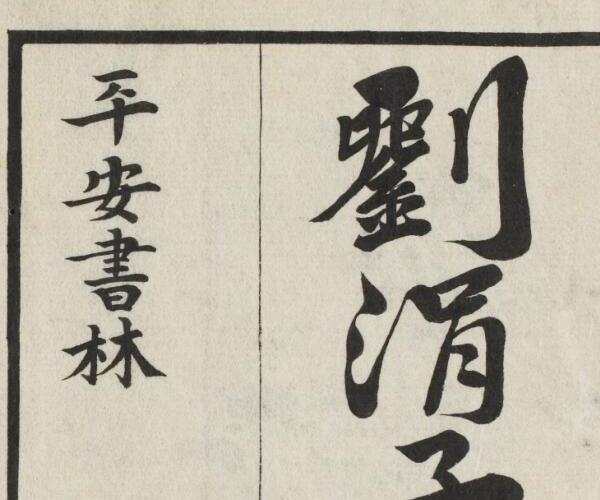 劉涓子
平安書林